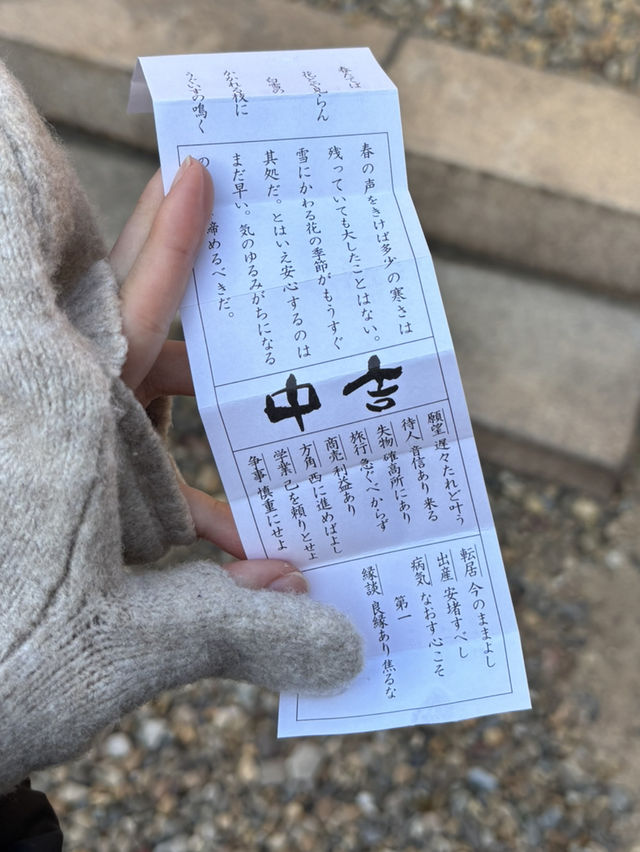 花とや見らん
白雪の
枝に
うぐいすの鳴く
春の声をきけば多少の寒さは
残っていても大したことはない。
雪にかわる花の季節がもうすぐ
其処だ。とはいえ安心するのは
まだ早い。気のゆるみがちになる
の 締めるべきだ。
中吉
願望 遅々たれど叶う
待人 音信あり 来る
失物 高所にあり
旅行 急ぐべからず
商売 利益あり
方角 西に進めばよし
学業 己を頼りとせよ
争事 慎重にせよ
転居 今のままよし
出産 安堵すべし
病気 なおす心こそ
第一
縁談 良縁あり焦るな